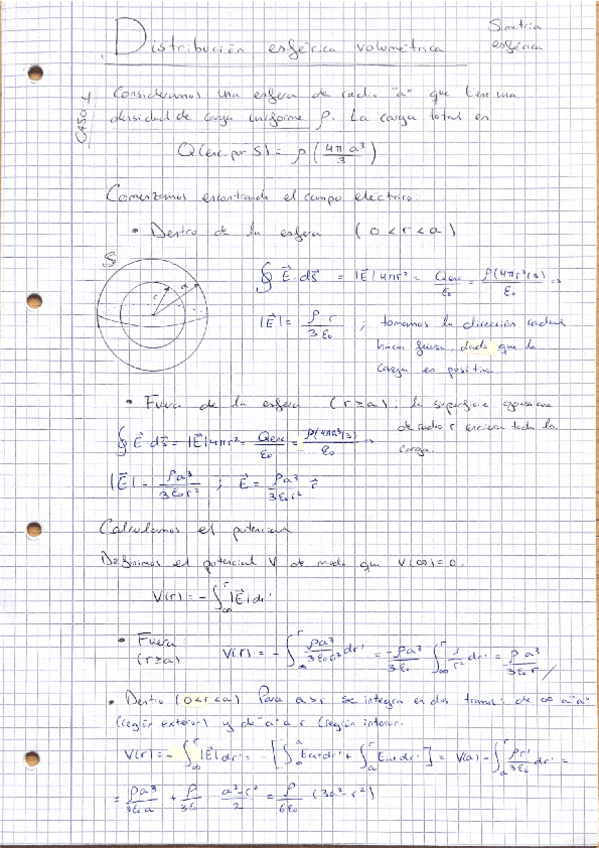 Distribución esférica volométrica
Simetria
esférica
CASO 1
Consideramos una esfera de radio "a" que tiene una
densidad de carga uniforme ρ. La carga total es
Q(enc. por S) = ρ(4πa³/3)
Comenzamos encontrando el campo eléctrico
• Dentro de la esfera (0<r<a)
S
r a
∮ E⃗·ds⃗ = |E|4πr² = Qenc/ε₀ = ρ(4πr³/3)/ε₀ ⇒
|E⃗| = ρr/3ε₀ ; tomamos la dirección radial
hacia fuera, dado que la
carga es positiva.
• Fuera de la esfera (r≥a): la superficie gaussiana
de radio r encierra toda la
carga.
∮ E⃗·ds⃗ = |E⃗|4πr² = Qenc/ε₀ = ρ(4πa³/3)/ε₀ ⇒
|E⃗| = ρa³/3ε₀r² ; E⃗ = ρa³/3ε₀r² r⃗
Calculamos el potencial
Definimos el potencial V de modo que V(∞)=0.
V(r) = -∫_∞^r |E⃗|dr'
• Fuera
(r≥a)
V(r) = -∫_∞^r ρa³/3ε₀r'² dr' = -ρa³/3ε₀ ∫_∞^r 1/r'² dr' = ρa³/3ε₀r
• Dentro (0<r<a) Para a>r se integra en dos tramos: de ∞ a "a"
(región exterior) y de "a" a r (región interior.
V(r) = -∫_∞^r |E⃗|dr' = -[∫_∞^a Eext dr' + ∫_a^r Eint dr'] = V(a) - ∫_a^r ρr'/3ε₀ dr' =
= ρa³/3ε₀a + ρ/3ε₀ a²-r²/2 = ρ/6ε₀ (3a²-r²)